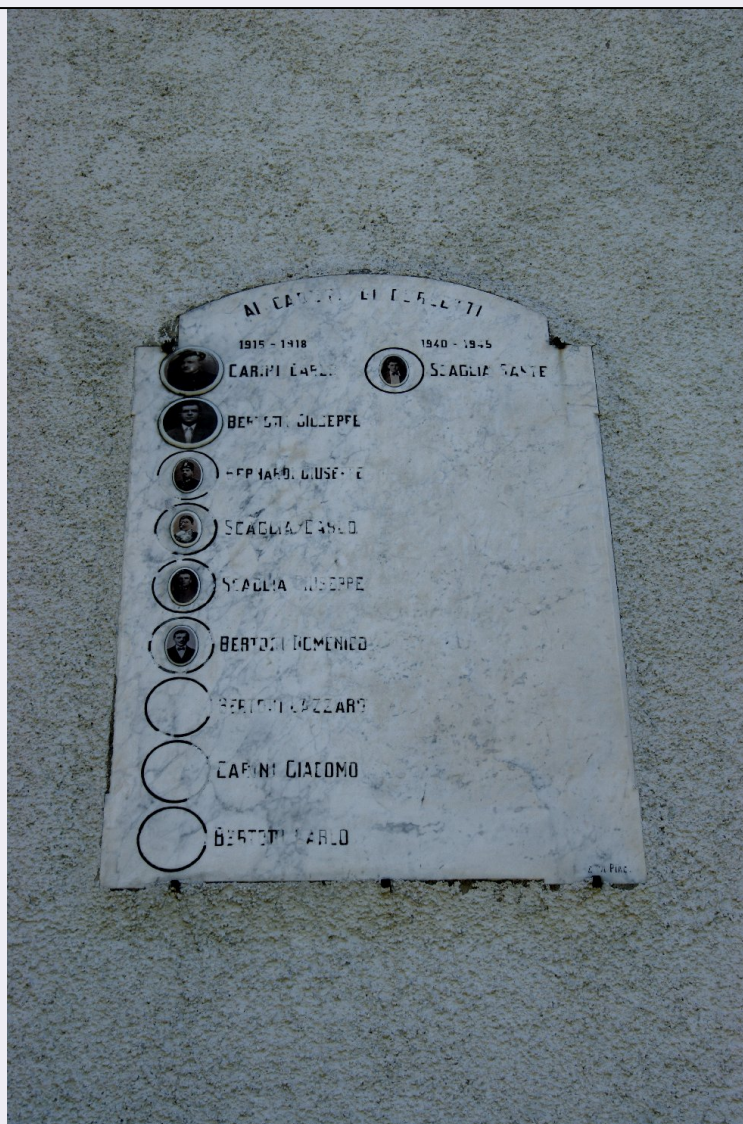 AI CADUTI DI
1915 - 1918
CARINI CARLO
BERTOTTI GIUSEPPE
GIUSEPPE
SCAGLIA CARLO
SCAGLIA GIUSEPPE
DOMENICO
LAZZARO
CARINI GIACOMO
BERTOTTI CARLO
1940 - 1945
SCAGLIA SANTE